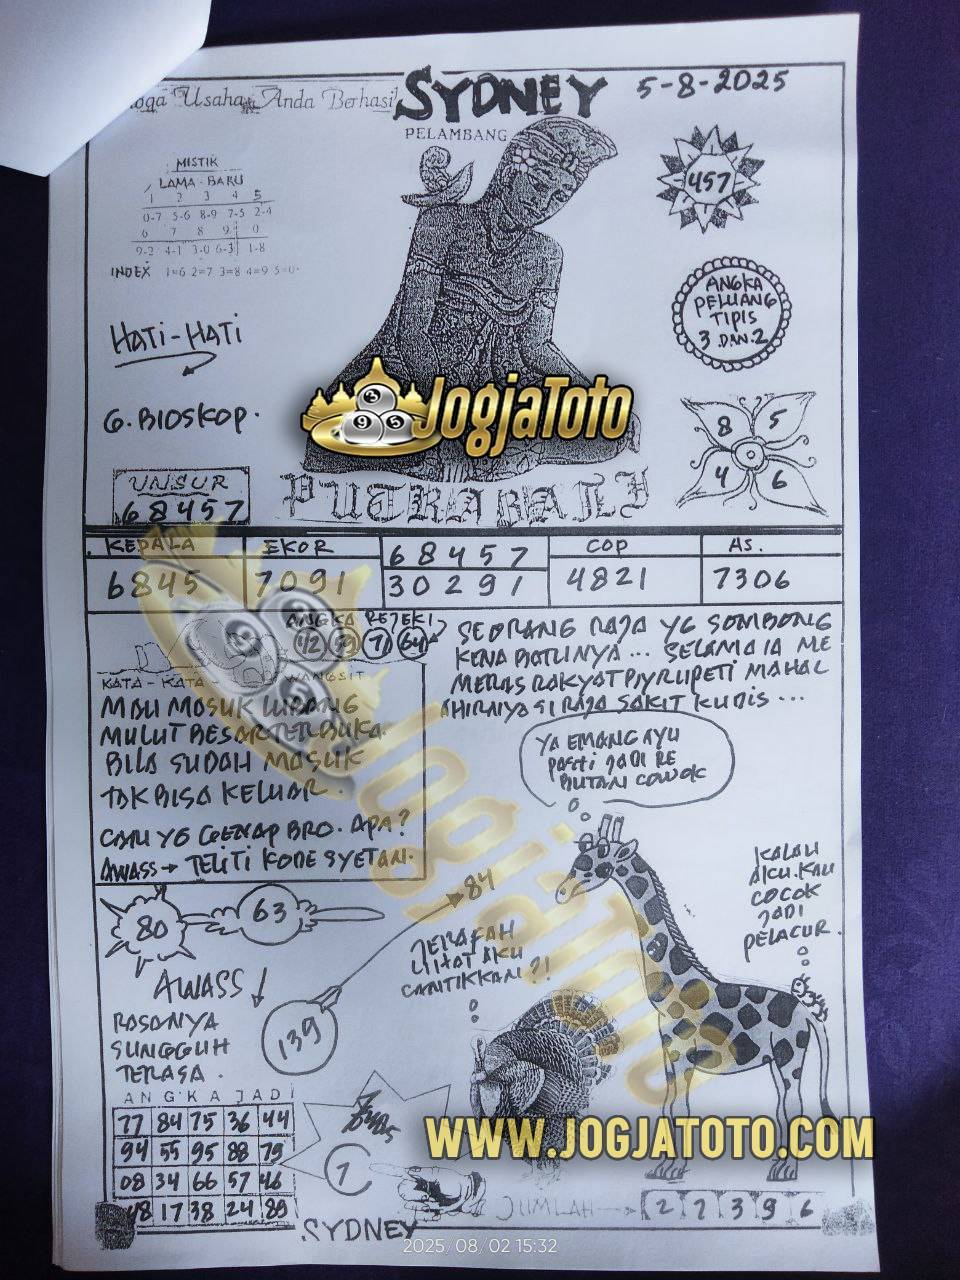 Usaha Anda Berhasil
SYDNEY
5-8-2025
PELAMBANG
MISTIK
LAMA - BARU
1 2 3 4 5
0-7 5-6 8-9 7-5 2-4
6 7 8 9 0
9-2 4-1 3-0 6-3 1-8
INDEX 1=6 2=7 3=8 4=9 5=0
457
ANGKA
PELUANG
TIPIS
3 DAN 2
HATI-HATI
G. BIOSKOP.
JOGJATOTO
8 5
4 6
UNSUR
68457
PUTRA BALI
KEPALA EKOR 68457 COP AS.
6845 7091 30291 4821 7306
ANGKA REJEKI
42 79 71 64
KATA - KATA - WANGSIT
MAU MASUK LUBANG
MULUT BESAR TERBUKA.
BILA SUDAH MASUK
TAK BISA KELUAR.
CARI YG GENAP BRO. APA?
AWASS → TELITI KODE SYETAN.
SEORANG RAJA YG SOMBONG
KENA BATUNYA... SELAMA IA ME
MERAS RAKYAT PJYR UPETI MAHAL
AHIRNYA SI RAJA SAKIT KUDIS...
YA EMANG AYU
PASTI JADI RE
BUTAN COWOK
KALAU
AKU. KAU
COCOK
JADI
PELACUR.
84
JERAFAH
LIHAT AKU
CANTIKKAN?!
80
63
AWASS!
139
RASANYA
SUNGGUH
TERASA.
ANGKA JADI
77 84 75 36 44
94 55 95 88 79
08 34 66 57 46
48 17 38 24 89
7
JogjaToto
WWW.JOGJATOTO.COM
JUMLAH → 2 7 3 9 6
SYDNEY
2025/08/02 15:32